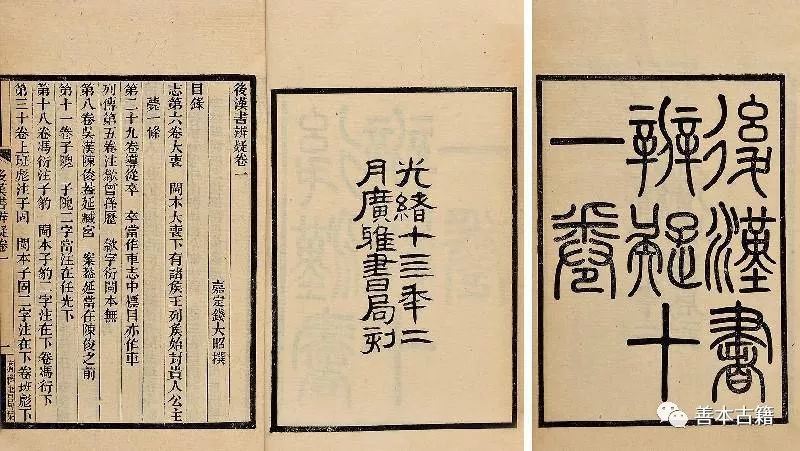 後漢書
辨疑十
一卷
光緒十三年二
月廣雅書局刻
後漢書辨疑卷一
嘉定錢大昭撰
目錄
志第六卷大喪 閩本大喪下有諸侯王列侯始封貴人公主
薨一條
第二十九卷導從卒 卒當作車志中標目亦作車
列傳第五卷注歙 歙字衍閩本無
第八卷吳漢陳俊蓋延臧宮 案蓋延當在陳俊之前
第十一卷子隗 子隗二字當注在任光下
第十八卷馮衍注子豹 閩本子豹二字注在下卷馮衍下
第三十卷上班彪注子固 閩本子固二字注在下卷班彪下
後漢書辨疑卷一
善本古籍